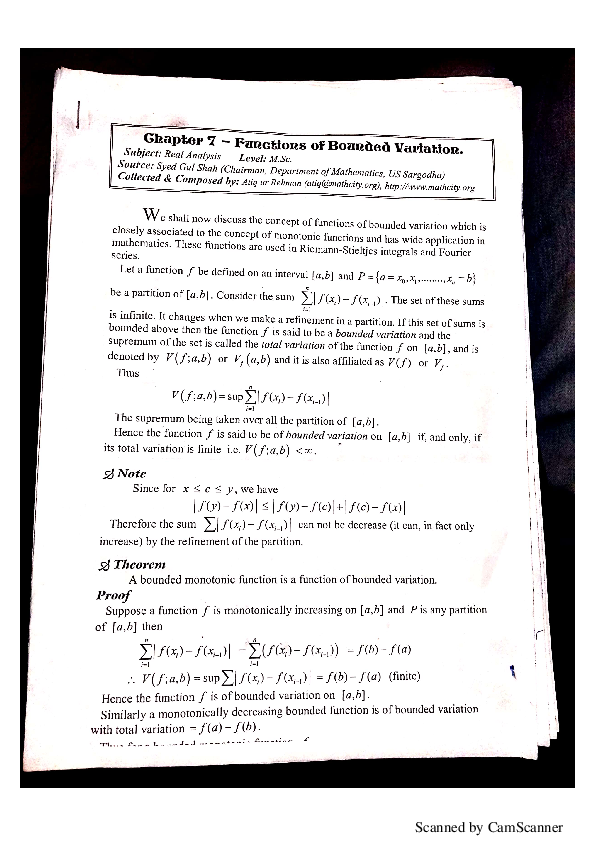 Chapter 7 – Functions of Bounded Variation.
Subject: Real Analysis Level: M.Sc.
Source: Syed Gul Shah (Chairman, Department of Mathematics, US Sargodha)
Collected & Composed by: Atiq ur Rehman (atiq@mathcity.org), http://www.mathcity.org
We shall now discuss the concept of functions of bounded variation which is
closely associated to the concept of monotonic functions and has wide application in
mathematics. These functions are used in Riemann-Stieltjes integrals and Fourier
series.
Let a function f be defined on an interval [a,b] and P = {a = x₀, x₁, ........, xₙ = b}
be a partition of [a,b]. Consider the sum ∑ᵢ₌₁ⁿ |f(xᵢ) − f(xᵢ₋₁)|. The set of these sums
is infinite. It changes when we make a refinement in a partition. If this set of sums is
bounded above then the function f is said to be a bounded variation and the
supremum of the set is called the total variation of the function f on [a,b], and is
denoted by V(f;a,b) or V_f(a,b) and it is also affiliated as V(f) or V_f.
Thus
V(f;a,b) = sup ∑ᵢ₌₁ⁿ |f(xᵢ) − f(xᵢ₋₁)|
The supremum being taken over all the partition of [a,b].
Hence the function f is said to be of bounded variation on [a,b] if, and only, if
its total variation is finite i.e. V(f;a,b) < ∞.
Note
Since for x ≤ c ≤ y, we have
|f(y) − f(x)| ≤ |f(y) − f(c)| + |f(c) − f(x)|
Therefore the sum ∑|f(xᵢ) − f(xᵢ₋₁)| can not be decrease (it can, in fact only
increase) by the refinement of the partition.
Theorem
A bounded monotonic function is a function of bounded variation.
Proof
Suppose a function f is monotonically increasing on [a,b] and P is any partition
of [a,b] then
∑ᵢ₌₁ⁿ |f(xᵢ) − f(xᵢ₋₁)| = ∑ᵢ₌₁ⁿ (f(xᵢ) − f(xᵢ₋₁)) = f(b) − f(a)
∴ V(f;a,b) = sup ∑|f(xᵢ) − f(xᵢ₋₁)| = f(b) − f(a) (finite)
Hence the function f is of bounded variation on [a,b].
Similarly a monotonically decreasing bounded function is of bounded variation
with total variation = f(a) − f(b).
Scanned by CamScanner